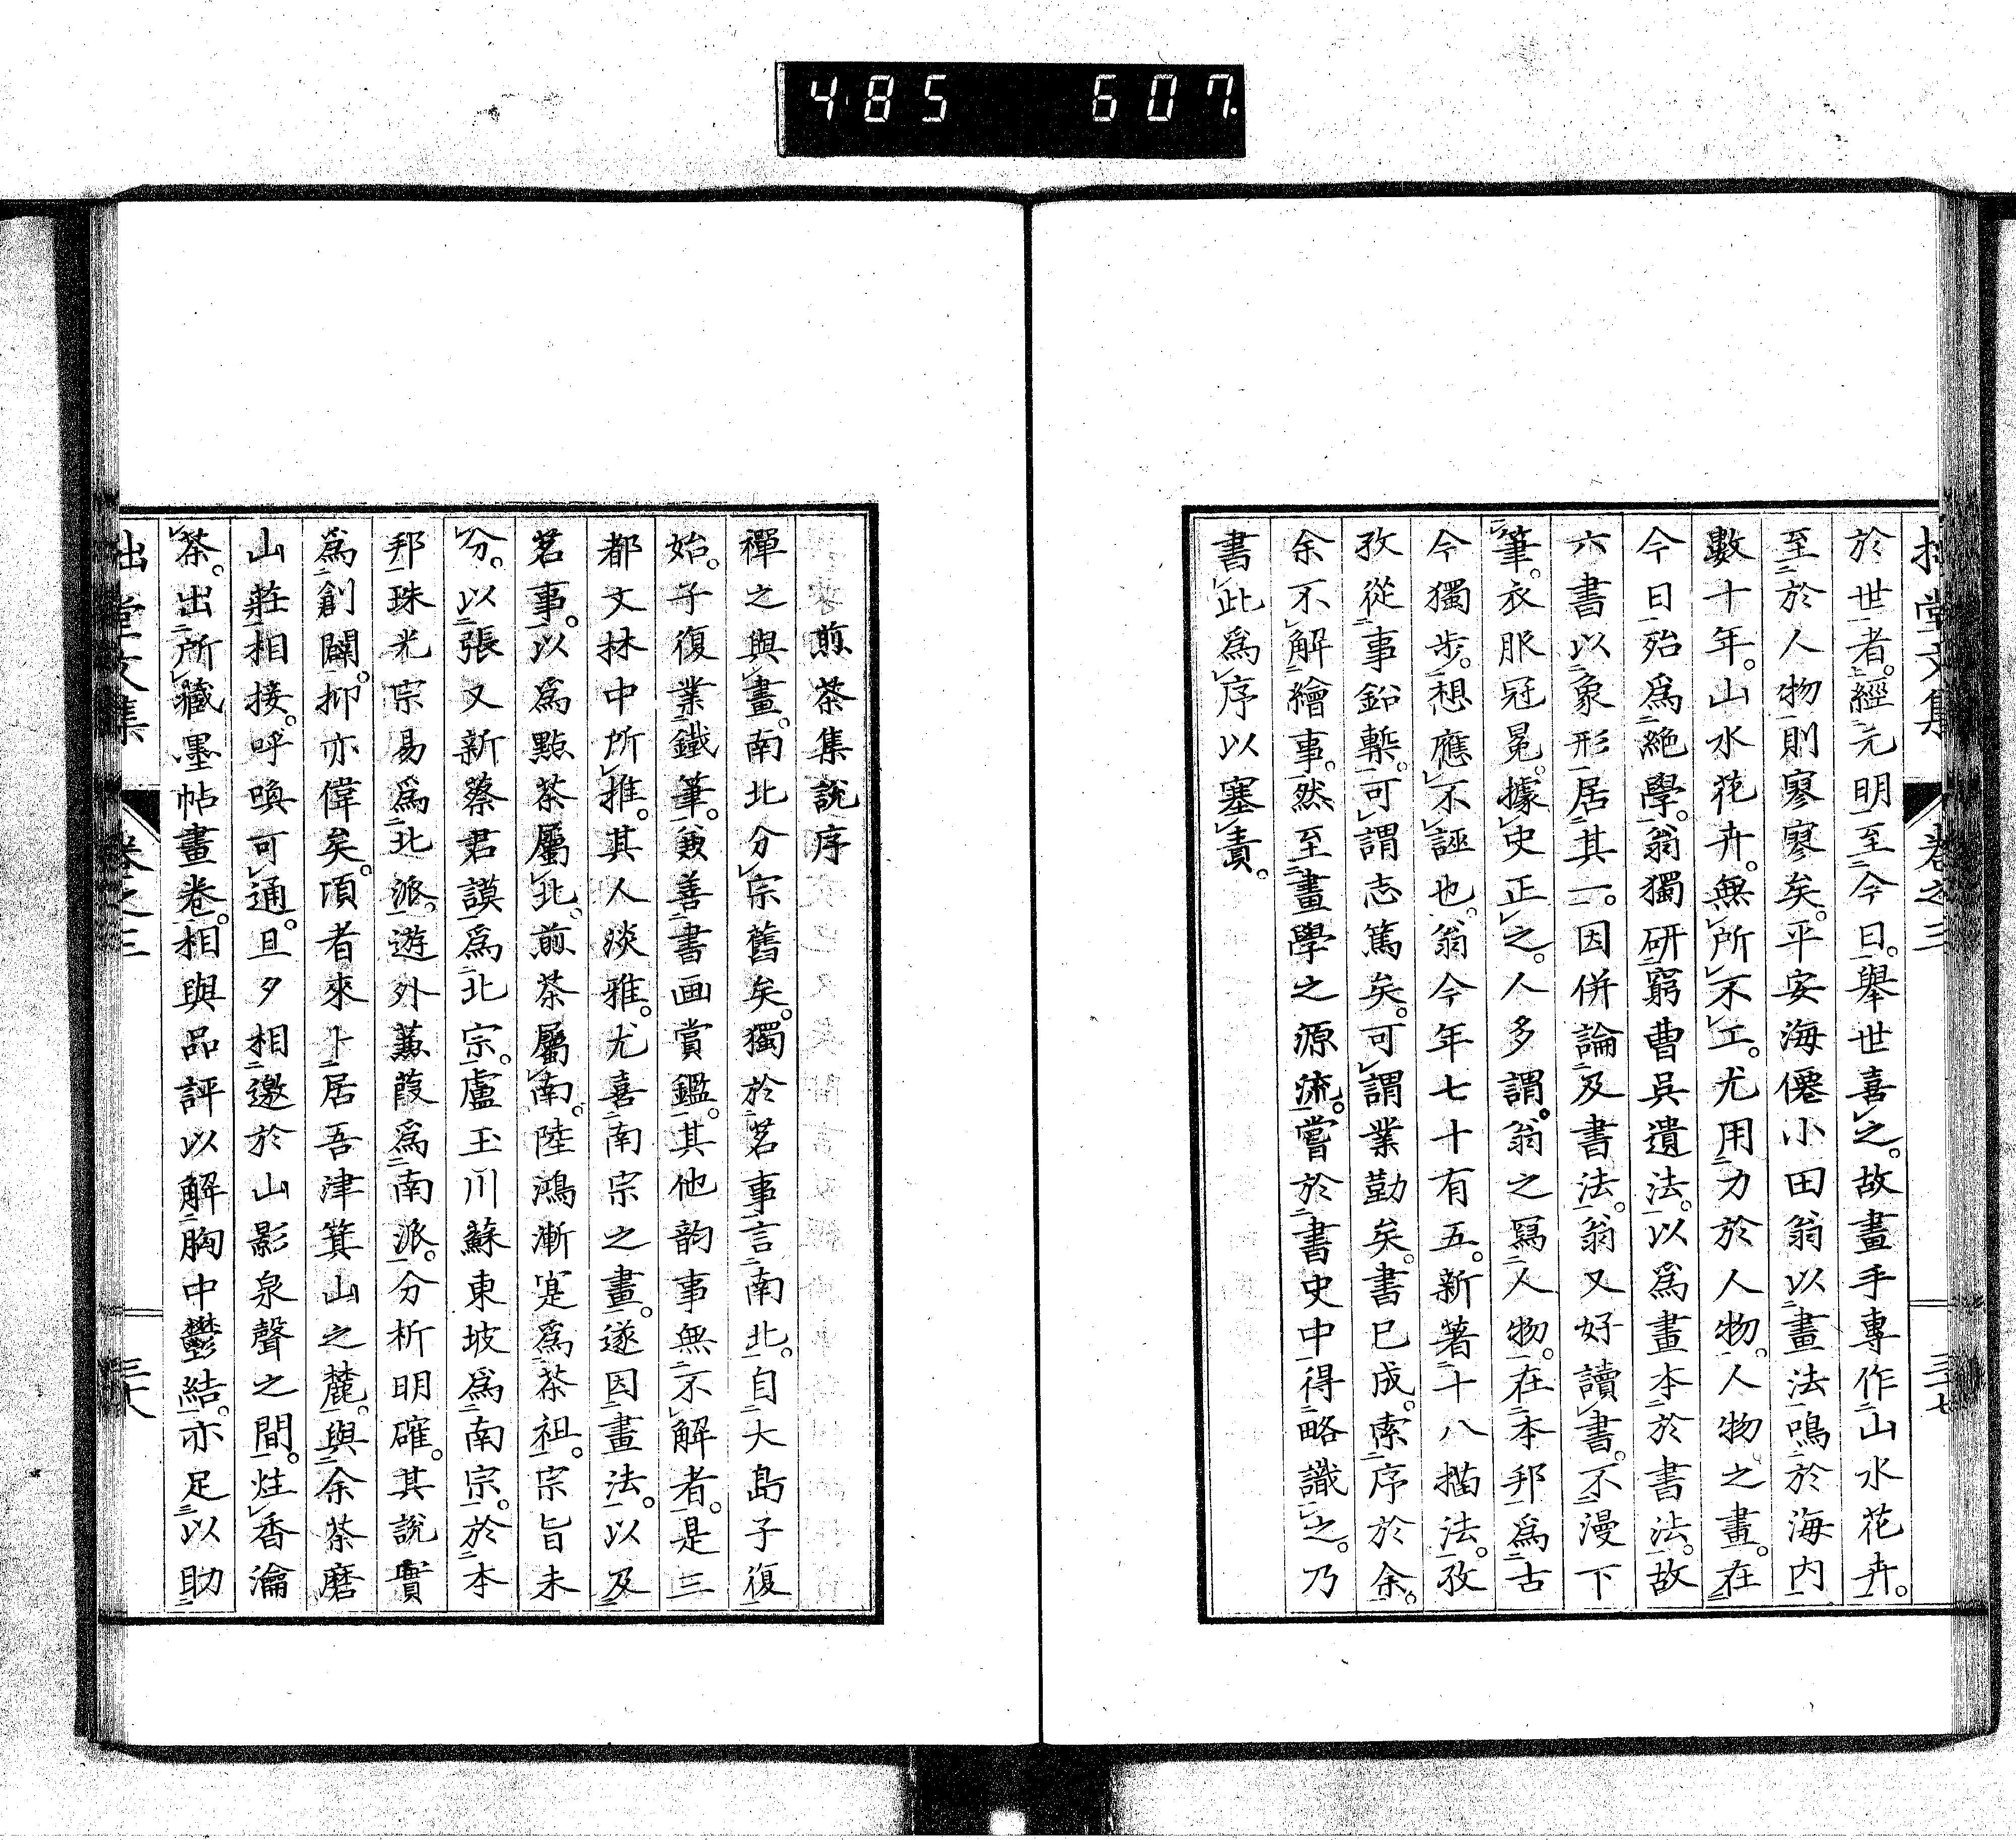 485 607
拙堂文集 卷之三 三十七
於世者。經元明至今日。舉世喜之。故畫手專作山水花卉。
至於人物則寥寥矣。平安海僊小田翁以畫法鳴於海内
數十年。山水花卉。無所不工。尤用力於人物。人物之畫。在
今日殆爲絶學。翁獨研窮曹吳遺法。以爲畫本於書法。故
六書以象形居其一。因併論及書法。翁又好讀書。不漫下
筆。衣服冠冕。據史正之。人多謂。翁之寫人物。在本邦爲古
今獨步。想應不誣也。翁今年七十有五。新著十八描法。孜
孜從事鉛槧。可謂志篤矣。可謂業勤矣。書已成。索序於余。
余不解繪事。然至畫學之源流。嘗於書史中得略識之。乃
書此爲序以塞責。
煎茶集説序
禪之與畫。南北分宗舊矣。獨於茗事言南北。自大島子復
始。子復業鐵筆。兼善書画賞鑑。其他韵事無不解者。是三
都文林中所推。其人淡雅。尤喜南宗之畫。遂因畫法。以及
茗事。以爲點茶屬北。煎茶屬南。陸鴻漸寔爲茶祖。宗旨未
分。以張又新蔡君謨爲北宗。盧玉川蘇東坡爲南宗。於本
邦珠光宗易爲北派。遊外蒹葭爲南派。分析明確。其説實
爲創闢。抑亦偉矣。頃者來卜居吾津箕山之麓。與余茶磨
山莊相接。呼喚可通。旦夕相邀於山影泉聲之間。炷香瀹
茶。出所藏墨帖畫卷。相與品評以解胸中鬱結。亦足以助
拙堂文集 卷之三 三十八